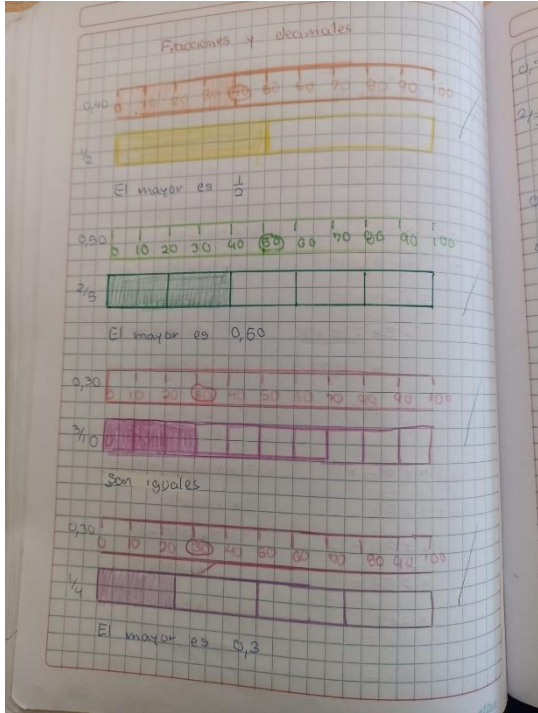 Fracciones y decimales
0,40 0 10 20 30 40 50 60 70 80 90 100
1/2
El mayor es 1/2
0,50 0 10 20 30 40 50 60 70 80 90 100
2/5
El mayor es 0,50
0,30 0 10 20 30 40 50 60 70 80 90 100
3/10
Son iguales
0,30 0 10 20 30 40 50 60 70 80 90 100
1/4
El mayor es 0,3